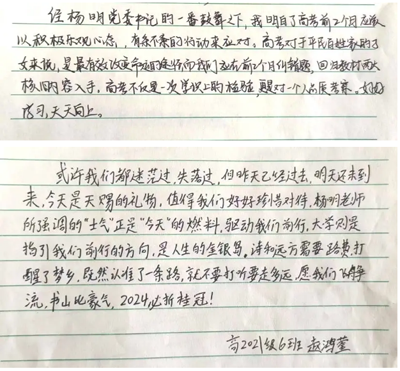 经杨明党委书记的一番鼓舞之下,我明白了高考前2个月应该
以积极乐观心态,有条不紊的行动来应对。高考对于平民百姓家的子
女来说,是最有效改变命运的途径而我们应在前2个月纠错题,回归教材两大
核心内容入手。高考不仅是一次学识上的检验,更是对一个人品质考察。好好
学习,天天向上。
或许我们都迷茫过,失落过,但昨天已经过去,明天还未到
来,今天是天赐的礼物,值得我们好好珍惜对待,杨明老师
所强调的“士气”正是“今天”的燃料,驱动我们前行,大学则是
指引我们前行的方向,是人生的金银岛。诗和远方需要路费,打
醒了梦乡,既然认准了一条路,就不要打听要走多远,愿我们飞静
流,书山比豪气,2024必折桂冠!
高2021级6班 赵鸿萱